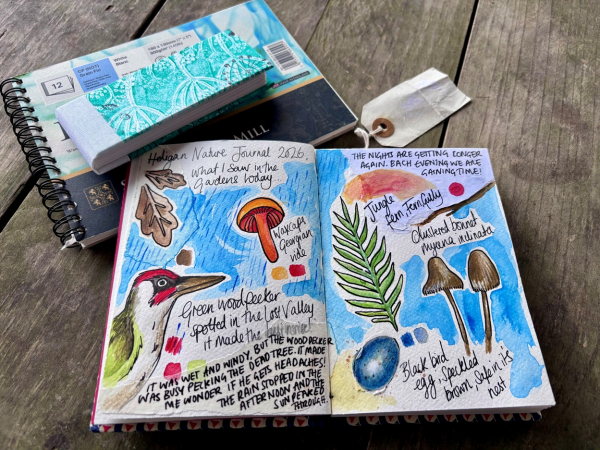 12
Heligan Nature Journal 2026.
What I saw in the
Gardens today
Waxcaps
Georgian
ride
Green woodpecker
spotted in the Lost Valley
it made the
IT WAS WET AND WINDY, BUT THE WOODPECKER
WAS BUSY PECKING THE DEAD TREE. IT MADE
ME WONDER IF HE GETS HEADACHES!
THE RAIN STOPPED IN THE
AFTERNOON AND THE
SUN PEAKED
THROUGH.
THE NIGHTS ARE GETTING LONGER
AGAIN. EACH EVENING WE ARE
GAINING TIME!
Jungle
fern, Fern Gully
Clustered bonnet
mycena inclinata
Black bird
egg, speckled
brown safe in its
nest
MILL